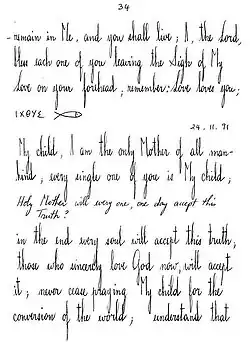 34
- remain in Me, and you shall live; I, the Lord,
bless each one of you leaving the Sigh of My
Love on your forehead; remember: Love loves you;
ΙΧΘΥΣ
24.11.91
My child, I am the only Mother of all man-
kind; every single one of you is My child;
Holy Mother will every one, one day accept this
Truth?
in the end every soul will accept this truth;
those who sincerely love God now, will accept
it; never cease praying My child for the
conversion of the world; understand that